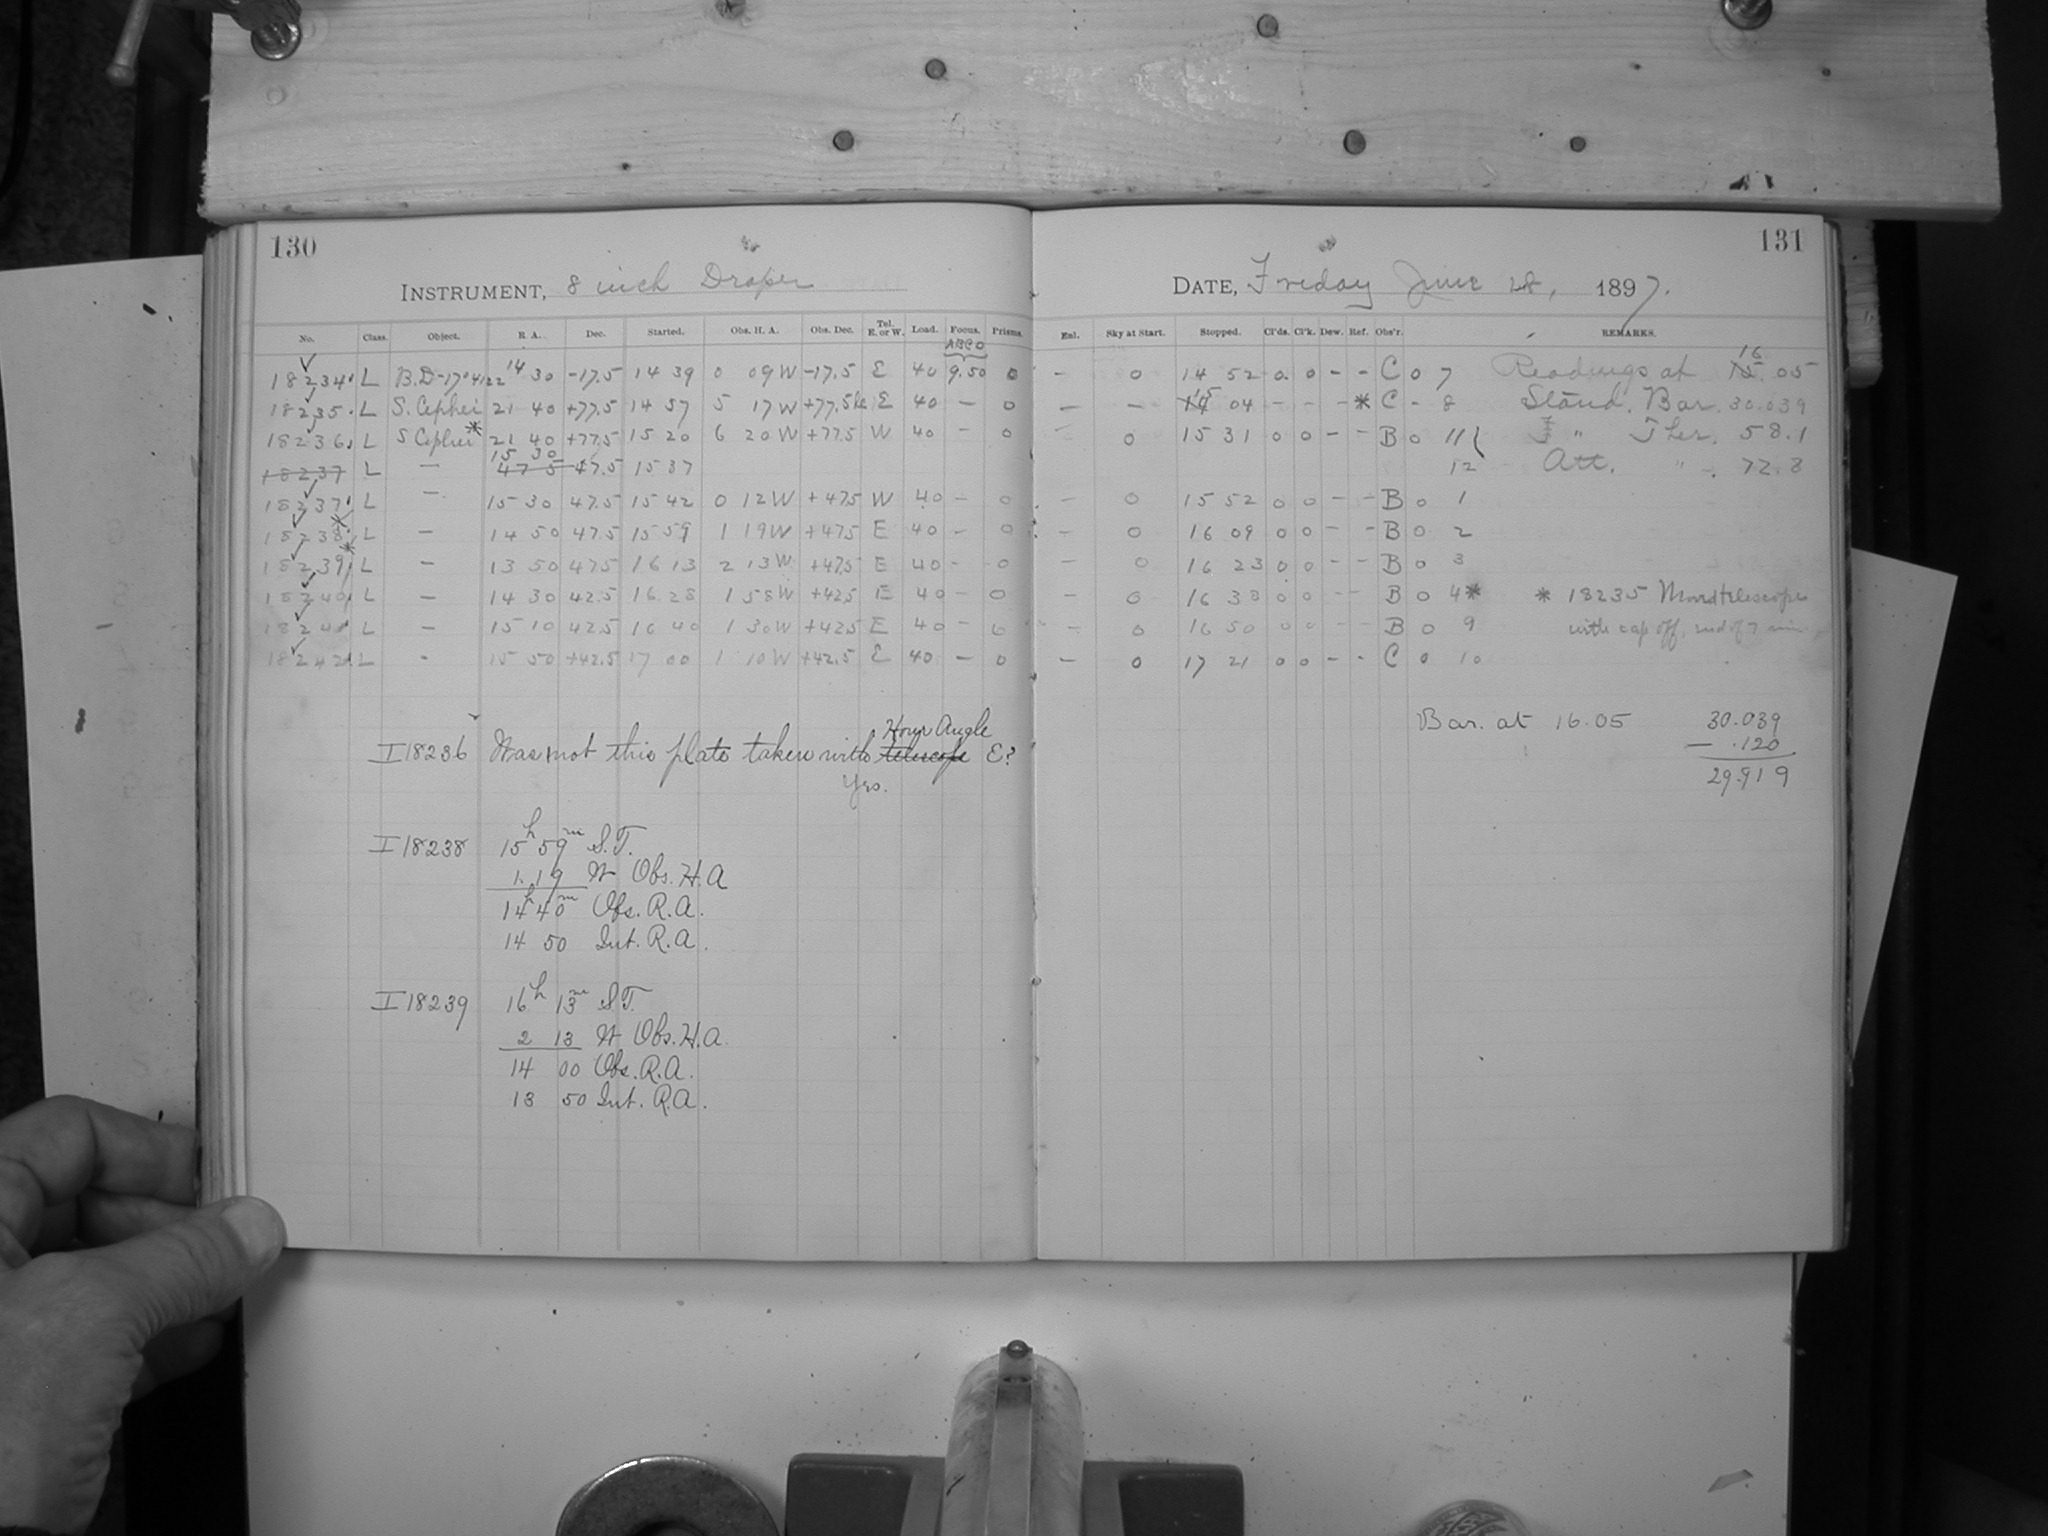 130
INSTRUMENT, 8 inch Draper
No. Class. Object. R. A. Dec. Started. Obs. H. A. Obs. Dec. Tel. E. or W. Load. Focus. Prisms.
ABCO
18234 L B.D-17°4122 14 30 -17.5 14 39 0 09W -17.5 E 40 9.50 0
18235 L S. Cephei 21 40 +77.5 14 57 5 17W +77.5 E 40 - 0
18236 L S Cephei* 21 40 +77.5 15 20 6 20W +77.5 W 40 - 0
15 30
18237 L - 47 5 47.5 15 37
18237 L - 15 30 47.5 15 42 0 12W +47.5 W 40 - 0
18238* L - 14 50 47.5 15 59 1 19W +47.5 E 40 - 0
18239* L - 13 50 47.5 16 13 2 13W +47.5 E 40 - 0
18240 L - 14 30 42.5 16 28 1 58W +42.5 E 40 - 0
18241 L - 15 10 42.5 16 40 1 30W +42.5 E 40 - 0
18242 L - 15 50 +42.5 17 00 1 10W +42.5 E 40 - 0
Hour Angle
I18236 Was not this plate taken with telescope E?
Yes.
I18238 15h 59m S.T.
1. 19 W Obs. H.A
14h 40m Obs. R.A.
14 50 Int. R.A.
I18239 16h 13m S.T.
2 13 W Obs. H.A.
14 00 Obs. R.A.
13 50 Int. R.A.
131
DATE, Friday June 1897.
Enl. Sky at Start. Stopped. Cl'ds. Cl'k. Dew. Ref. Obs'r. REMARKS.
16
- 0 14 52 0 0 - - C 0 7 Readings at 15.05
15
- - 14 04 - - - * C - 8 Stand. Bar. 30.039
- 0 15 31 0 0 - - B 0 11 " Ther. 58.1
12 Att. " 72.8
- 0 15 52 0 0 - - B 0 1
- 0 16 09 0 0 - - B 0 2
- 0 16 23 0 0 - - B 0 3
- 0 16 38 0 0 - - B 0 4* * 18235 Moved telescope
- 0 16 50 0 0 - - B 0 9 with cap off, end of 7 min
- 0 17 21 0 0 - - C 0 10
Bar. at 16.05 30.039
- .120
29.919